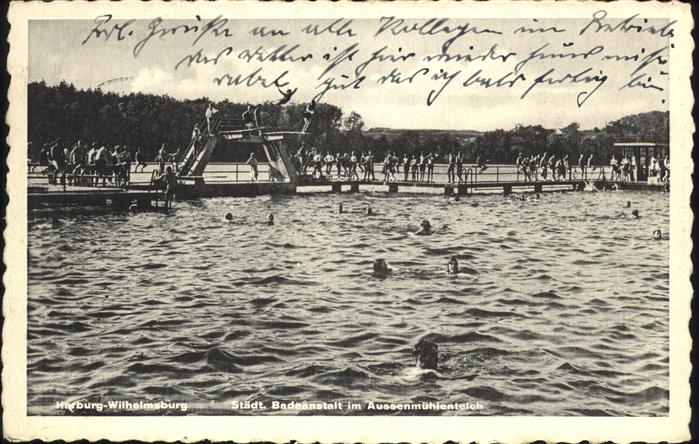 Frl. Grüße an alle Kollegen im Betriebe
das Wetter ist hier wieder ganz mise
rabel gut das ich bald fertig bin.
Harburg-Wilhelmsburg Städt. Badeanstalt im Aussenmühlenteich